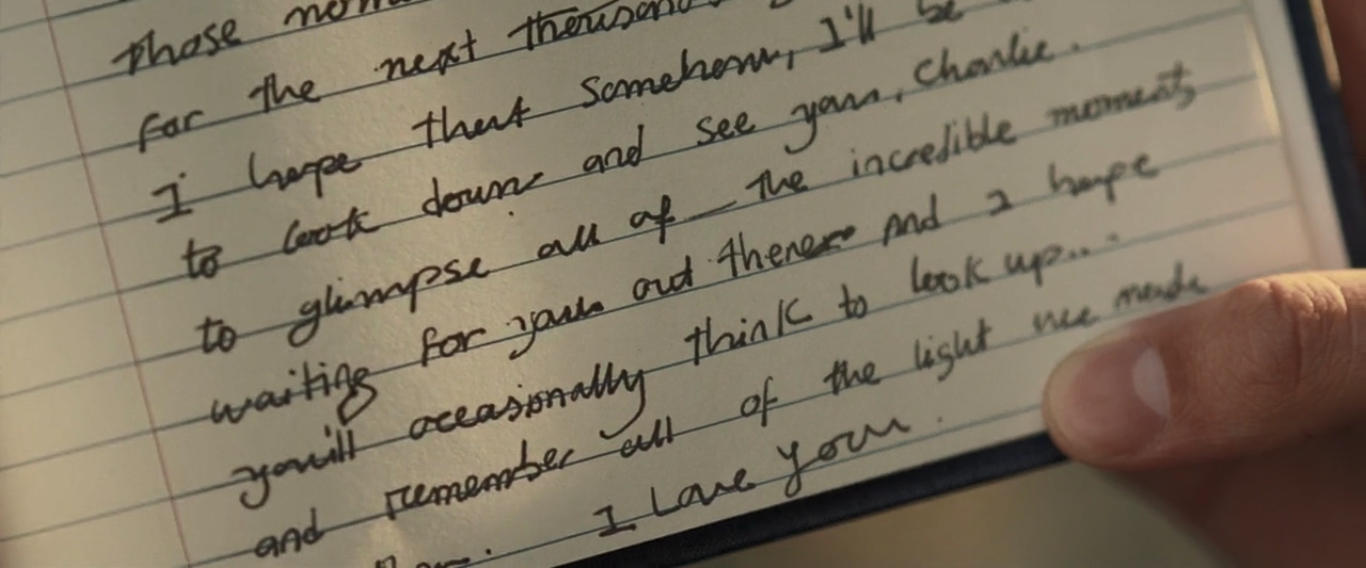 those
for the next thousand
I hope that somehow, I'll be
to look down and see you, Charlie.
to glimpse all of the incredible moments
waiting for you out there. And I hope
you'll occasionally think to look up...
and remember all of the light we made
I Love You.